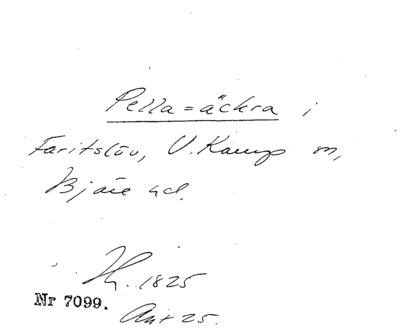 Pella=äckra i
Faritslöv, V. Karup m,
Bjäre hd.
Hg. 1825
Nr 7099.
Akt 25.